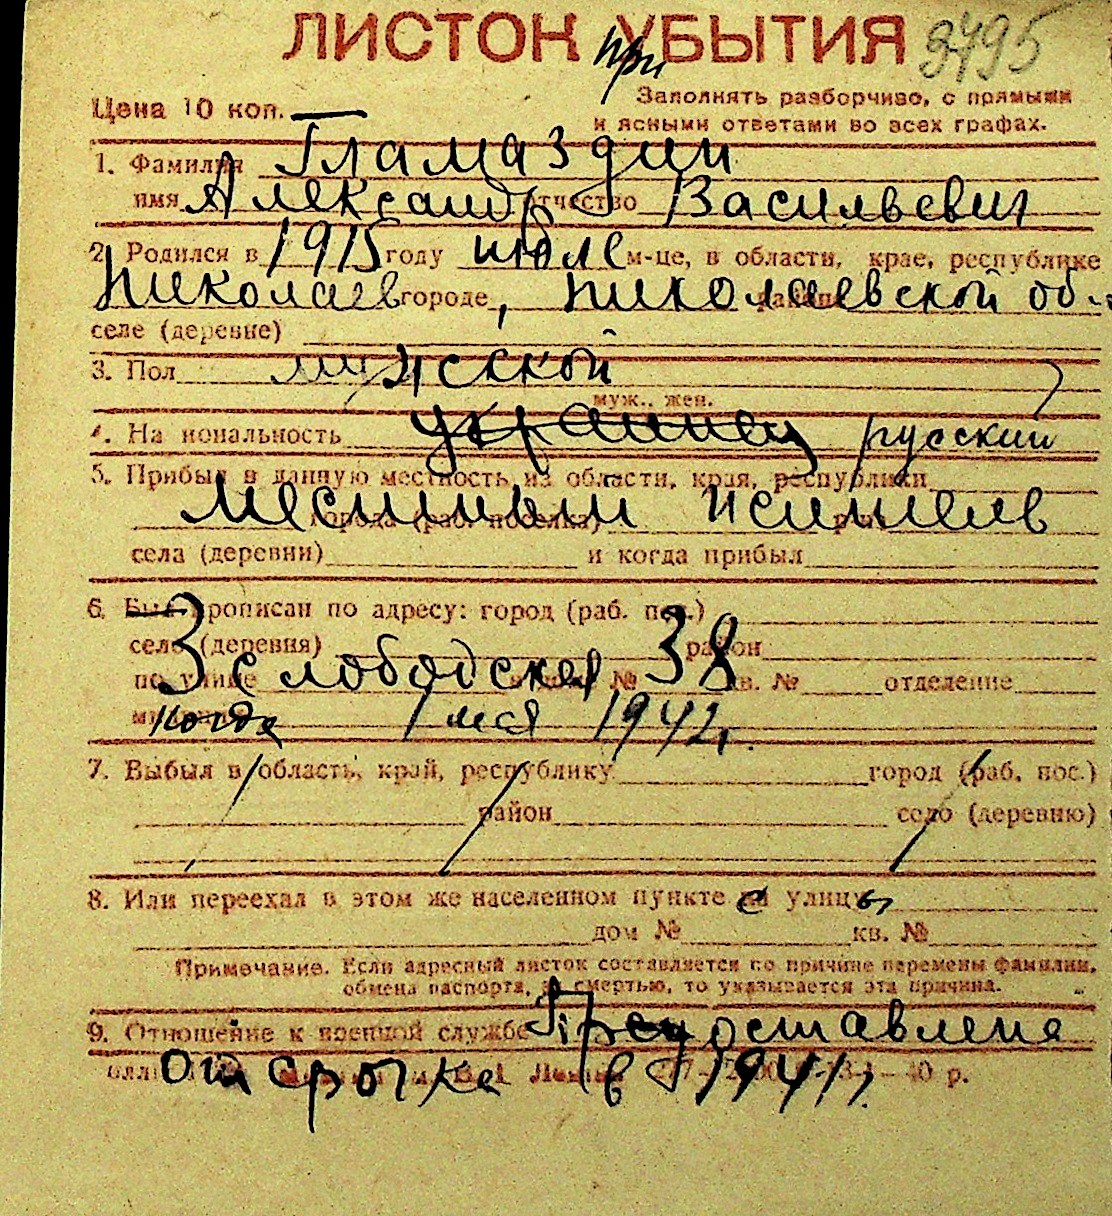 ЛИСТОК УБЫТИЯ
при
3495
Цена 10 коп.
Заполнять разборчиво, с прямыми
и ясными ответами во всех графах.
1. Фамилия Гламаздин
имя Александр отчество Васильевич
2. Родился в 1915 году июле м-це, в области, крае, республике
Николаев городе, Николаевской об.
селе (деревне)
3. Пол мужской
муж., жен.
4. На иональность украинец русский
5. Прибыл в данную местность из области, края, республики
местный житель
города (раб. поселка)
села (деревни) и когда прибыл
6. Был прописан по адресу: город (раб. пос.)
село (деревня) район
по улице 3 слободская дом № 38 кв. № отделение
когда 1 мая 1942 г.
7. Выбыл в область, край, республику город (раб. пос.)
район село (деревню)
8. Или переехал в этом же населенном пункте с улицы
дом № кв. №
Примечание. Если адресный листок составляется по причине перемены фамилии,
обмена паспорта, смертью, то указывается эта причина.
9. Отношение к военной службе Предоставлена
отсрочка в 1941 г.
40 р.